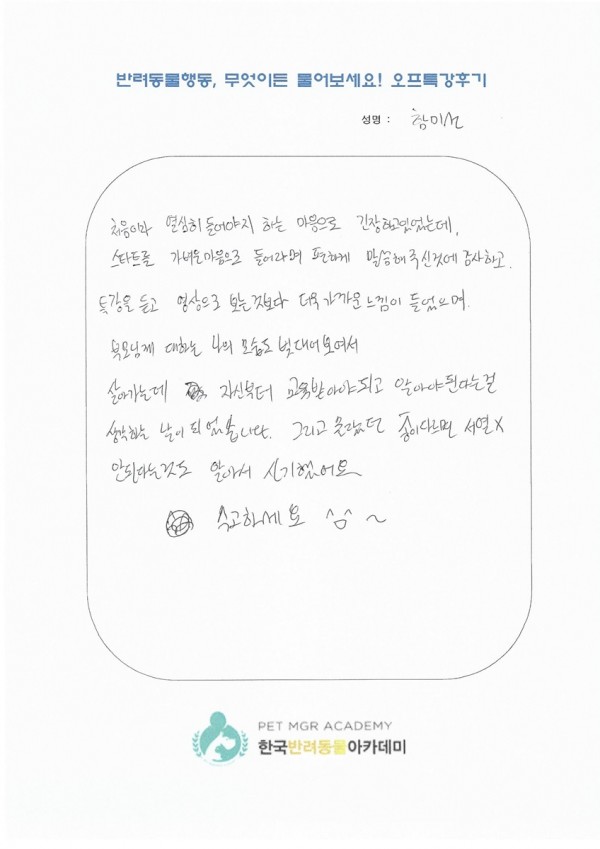 반려동물행동, 무엇이든 물어보세요! 오프특강후기
성명 :
처음이라 열심히 들어야지 하는 마음으로 긴장하고있었는데,
스타트를 가벼운마음으로 들어라며 편하게 말씀해주신것에 감사하고.
특강을 듣고 영상으로 보는것보다 더욱 가까운 느낌이 들었으며.
부모님께 대하는 나의 모습도 빗대어보여서
살아가는데 자신부터 교육받아야되고 알아야된다는걸
생각하는 날이 되었습니다. 그리고 몰랐던 종이다르면 서열X
안된다는것도 알아서 신기했어요
수고하세요 ^^ ~
PET MGR ACADEMY
한국반려동물아카데미